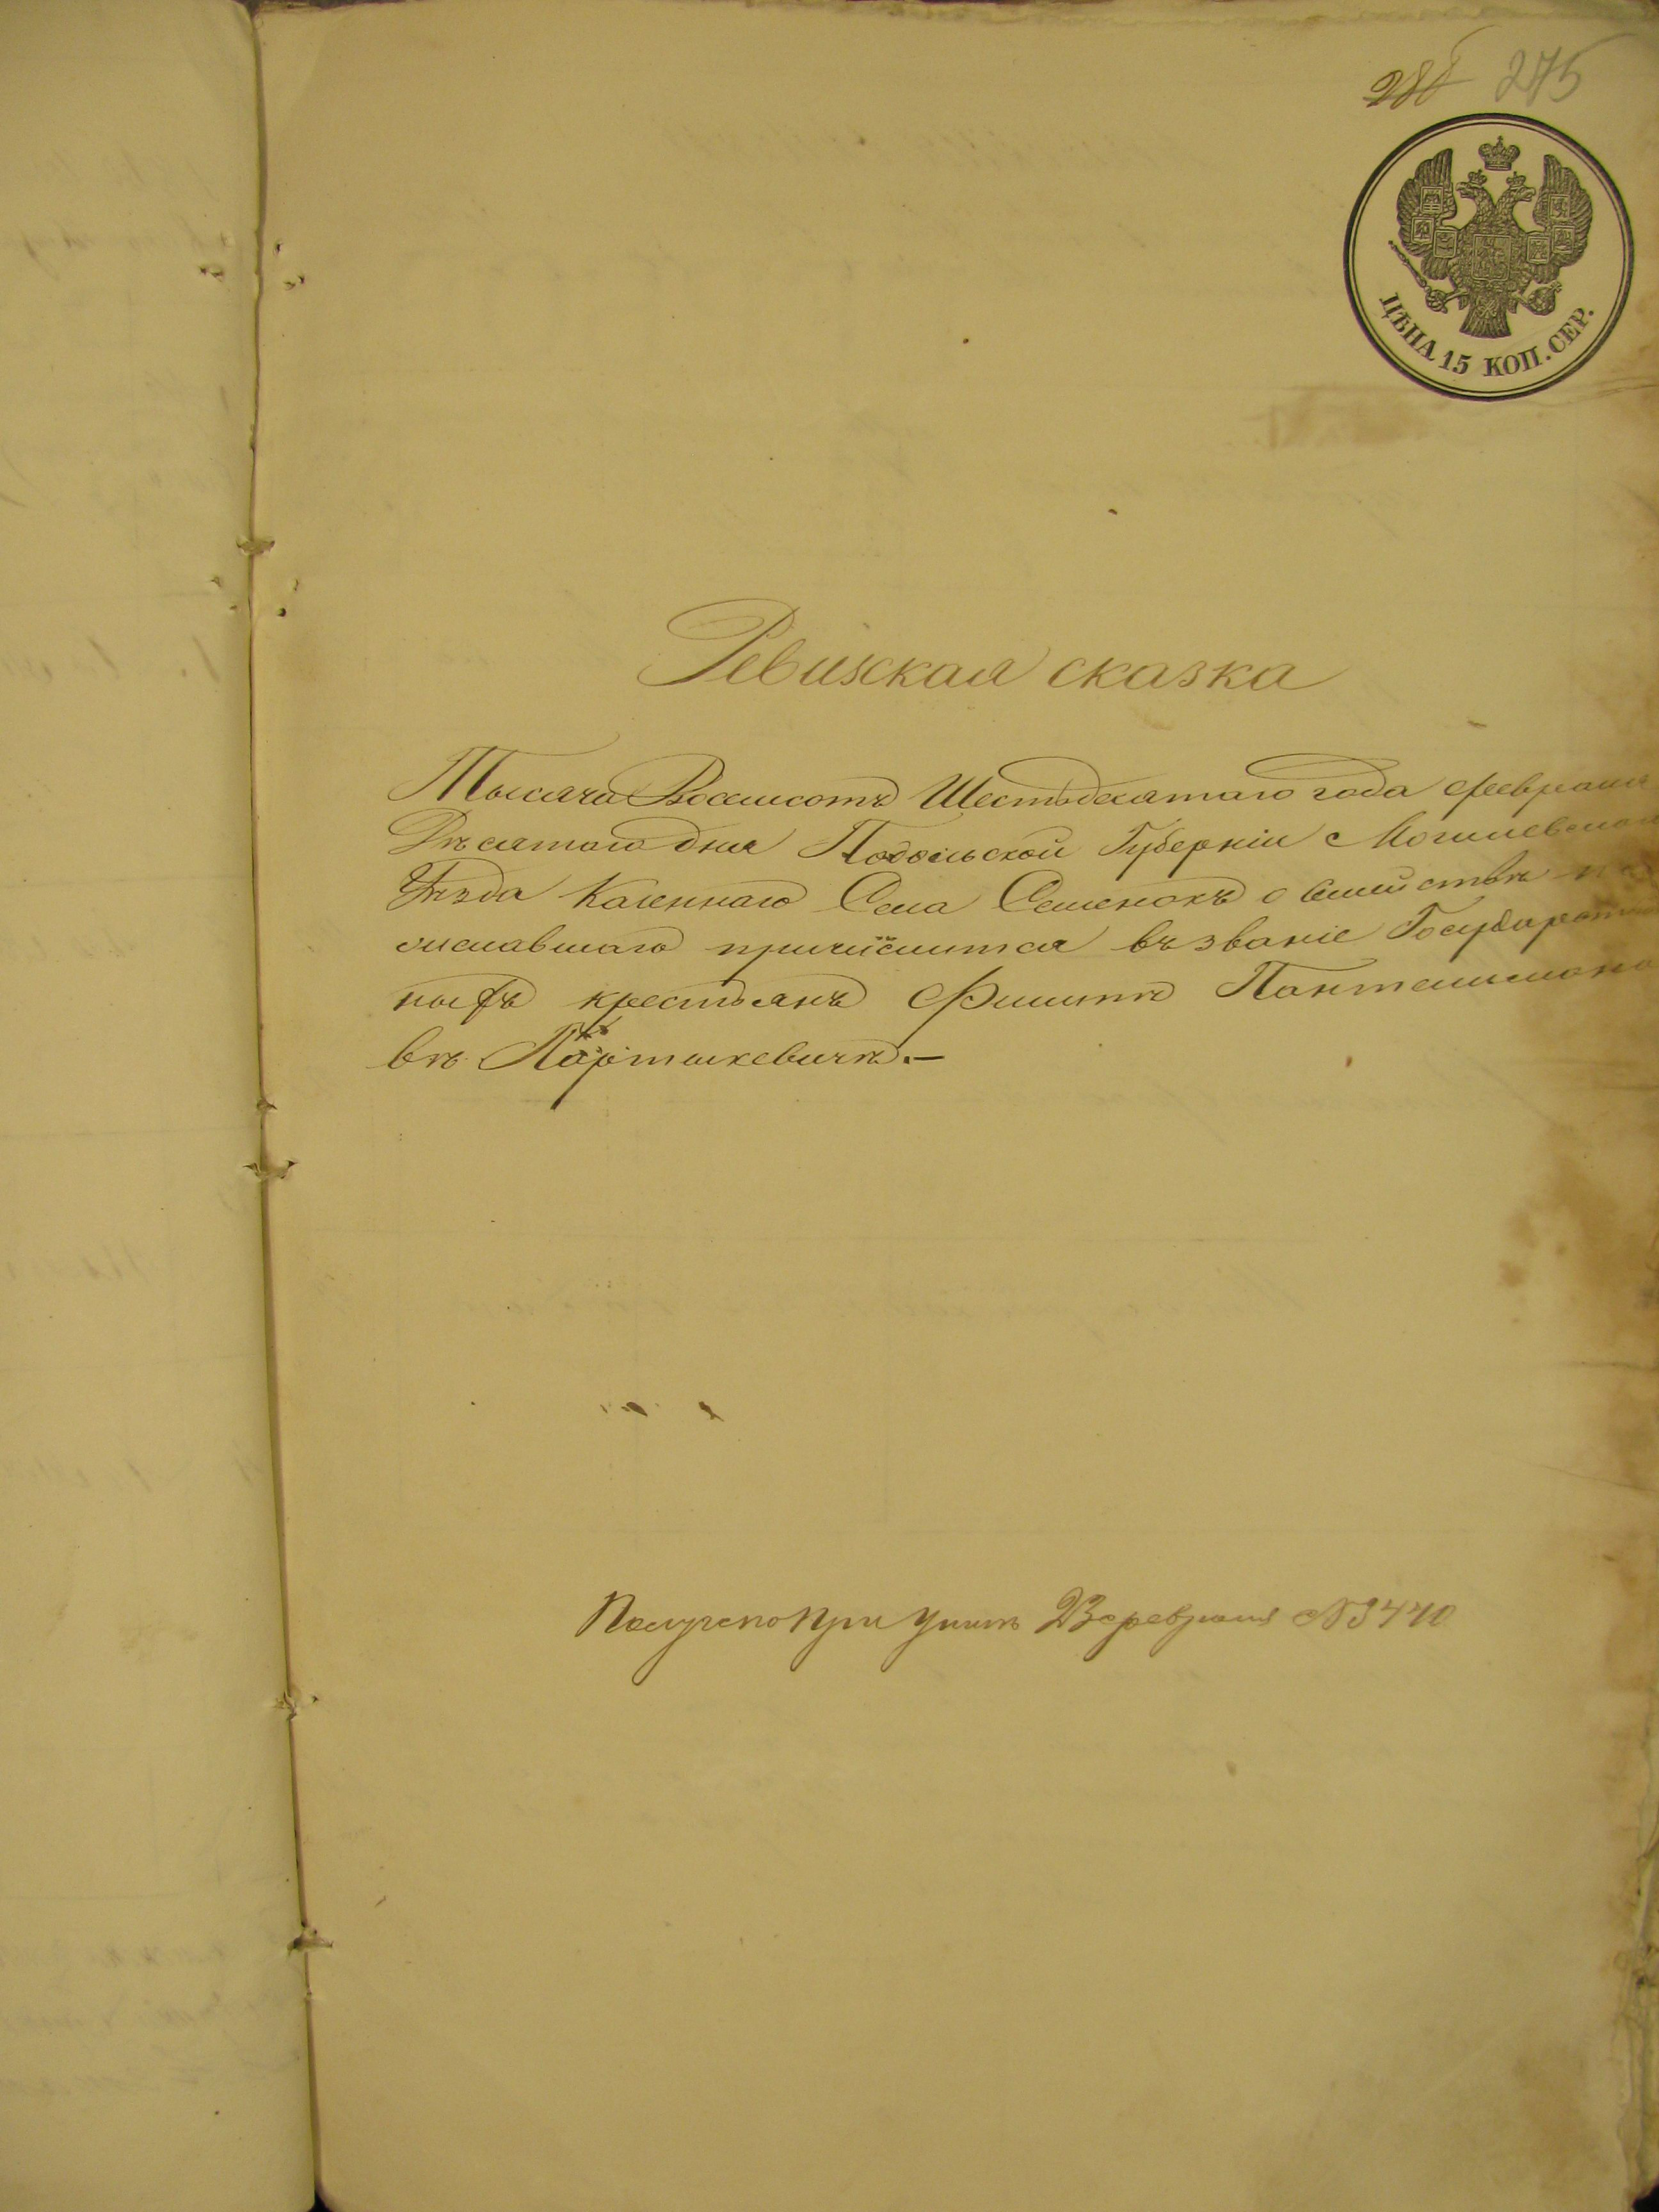 275
ЦѢНА 15 КОП. СЕР.
Ревизская сказка
Тысяча Восемсотъ Шестьдесятаго года февраля
Дѣсятого дня Подольской Губерніи Могилевского
Уѣзда Казеннаго Села Семенокъ о Семѣйствѣ
желавшаго причислится въ званіе Государствен
ныхъ крестьянъ Филипѣ Пантелимоно
вѣ Партыкевичѣ.—
Получено при 23 февраля №3440